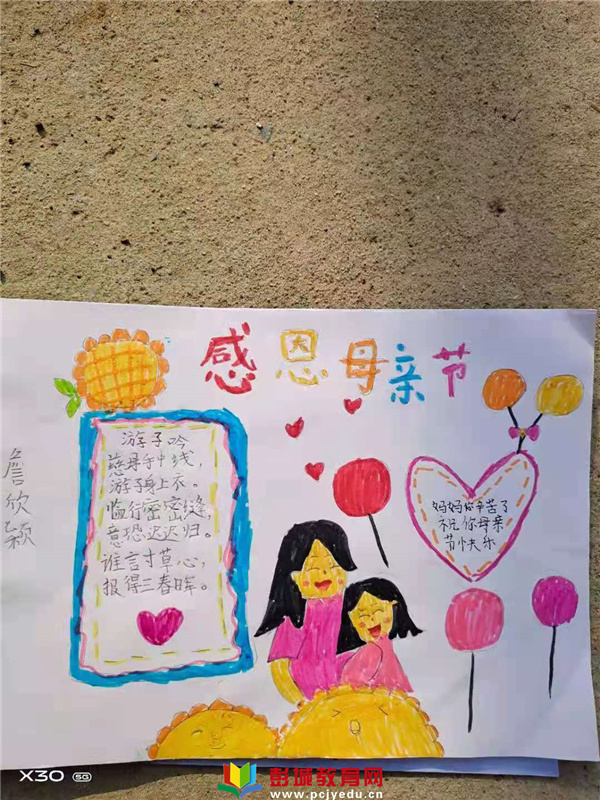 感恩母亲节
游子吟
慈母手中线，
游子身上衣。
临行密密缝，
意恐迟迟归。
谁言寸草心，
报得三春晖。
妈妈你辛苦了
祝你母亲
节快乐
詹欣颖
X30 5G
彭城教育网
www.pcjyedu.cn